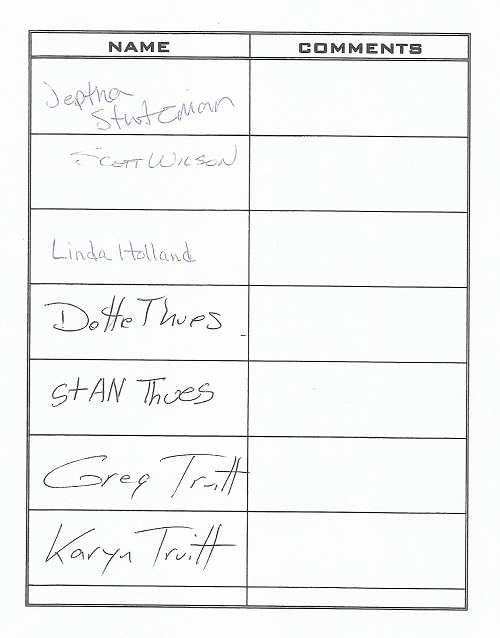 NAME COMMENTS
Jeptha
Stuteman
Scott Wilson
Linda Holland
Dotte Thues
StAN Thues
Greg Truitt
Karyn Truitt